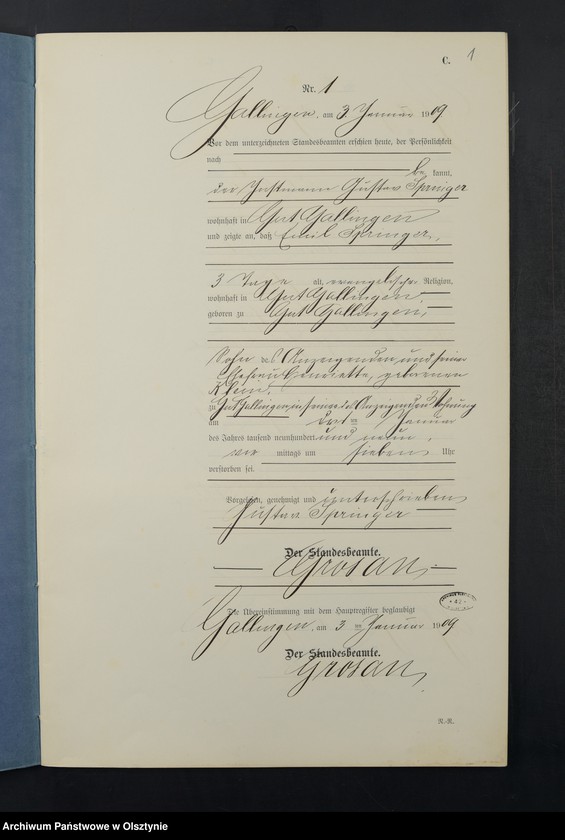 C. 1
Nr. 1
Gallingen, am 3. Januar 1909
Vor dem unterzeichneten Standesbeamten erschien heute, der Persönlichkeit
nach
be kannt,
der Instmann Gustav Springer
wohnhaft in Gut Gallingen
und zeigte an, daß Emil Springer,
3 Tage alt, evangelischer Religion,
wohnhaft in Gut Gallingen,
geboren zu Gut Gallingen,
Sohn des Anzeigenden und seiner
Ehefrau Henriette, geborenen
Klein,
zu Gut Gallingen in seiner des Anzeigenden Wohnung
am drei ten Januar
des Jahres tausend neunhundert und neun,
vor mittags um sieben Uhr
verstorben sei.
Vorgelesen, genehmigt und unterschrieben
Gustav Springer
Der Standesbeamte.
Grosan
Die Übereinstimmung mit dem Hauptregister beglaubigt
Gallingen, am 3 ten Januar 1909
Der Standesbeamte.
Grosan
Archiwum Państwowe w Olsztynie